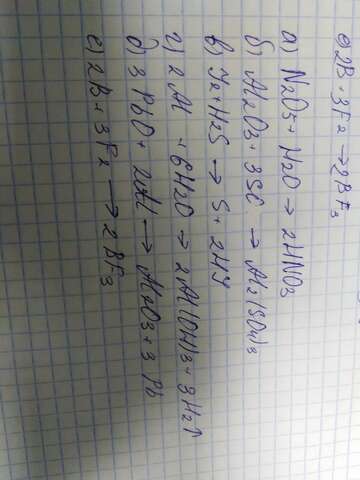 е) 2B + 3F₂ → 2BF₃
а) N₂O₅ + H₂O → 2HNO₃
б) Al₂O₃ + 3SO → Al₂(SO₄)₃
в) J₂ + H₂S → S + 2HJ
г) 2Al + 6H₂O → 2Al(OH)₃ + 3H₂↑
д) 3PbO + 2Al → Al₂O₃ + 3Pb
е) 2B + 3F₂ → 2BF₃